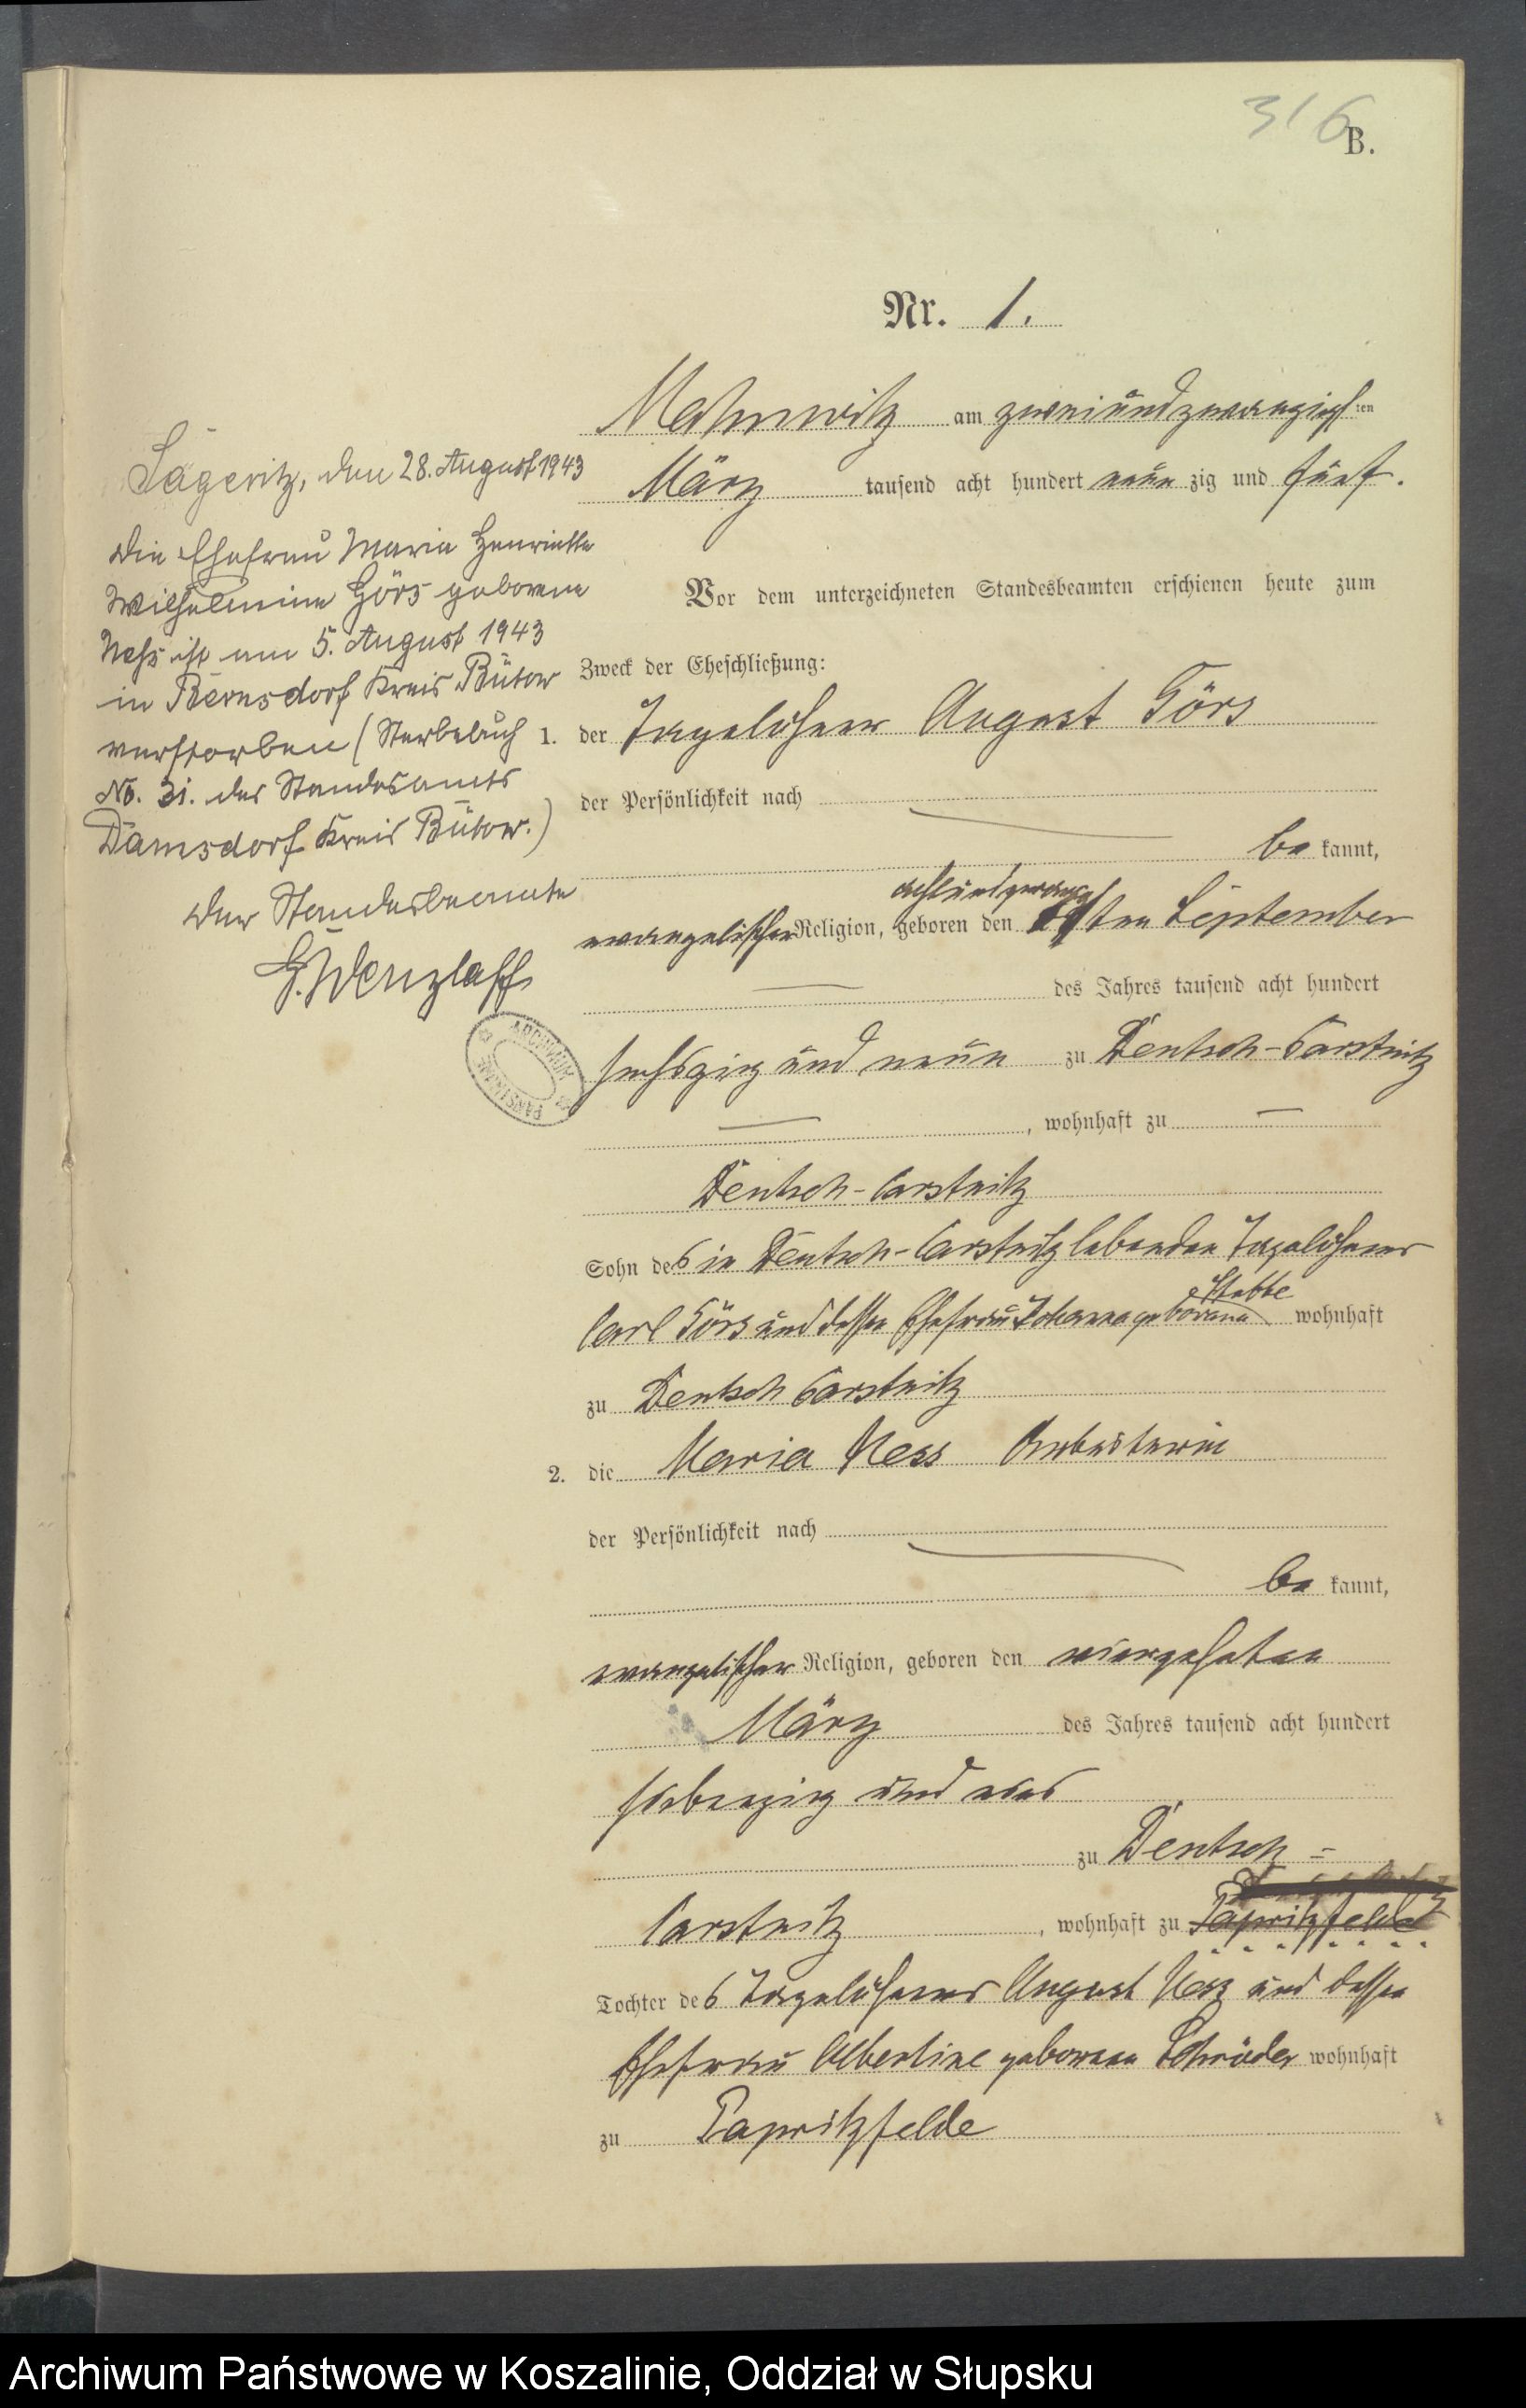 316
B.
Nr. 1.
Mahnwitz am zweiundzwanzigsten
März tausend acht hundert neun zig und fünf.
Vor dem unterzeichneten Standesbeamten erschienen heute zum
Zweck der Eheschließung:
1. der Tagelöhner August Görs
der Persönlichkeit nach
be kannt,
evangelischer Religion, geboren den achtundzwanzigsten September
des Jahres tausend acht hundert
sechszig und neun zu Deutsch-Carstnitz
, wohnhaft zu
Deutsch-Carstnitz
Sohn des in Deutsch-Carstnitz lebenden Tagelöhners
Carl Görs und dessen Ehefrau Johanna geborene wohnhaft
zu Deutsch Carstnitz
2. die Maria Ness Arbeiterin
der Persönlichkeit nach
be kannt,
evangelischer Religion, geboren den vierzehnten
März des Jahres tausend acht hundert
siebenzig und
zu Deutsch-
Carstnitz, wohnhaft zu Papritzfelde
Tochter des Tagelöhners August Ness und dessen
Ehefrau Albertine geborene Schröder wohnhaft
zu Papritzfelde
Lägeritz, den 28. August 1943
Die Ehefrau Maria Henriette
Wilhelmine Görs geborene
Ness ist am 5. August 1943
in Bernsdorf Kreis Bütow
verstorben (Sterbebuch
No. 31. des Standesamts
Damsdorf Kreis Bütow.)
Der Standesbeamte
G. Wenzlaff
ARCHIWUM PAŃSTWOWE
Archiwum Państwowe w Koszalinie, Oddział w Słupsku